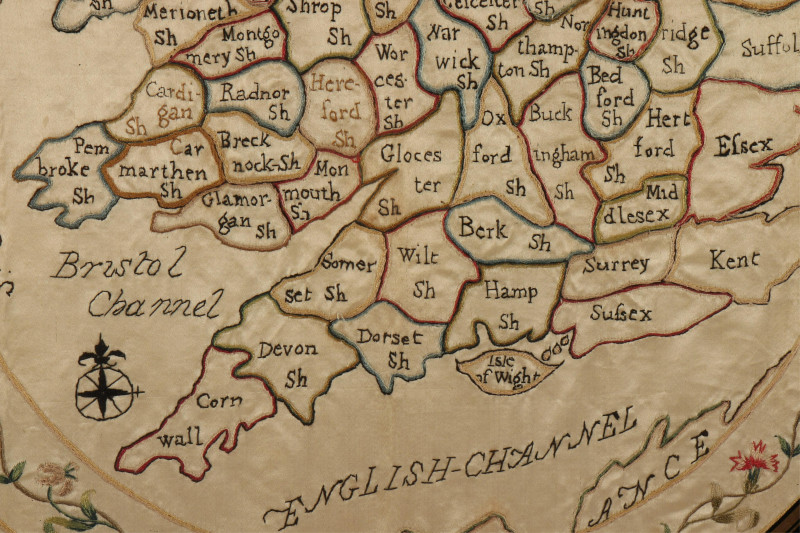 Merioneth
Sh
Shrop
Sh
Leicester
Sh
Sh
Hunt
ingdon
Sh
ridge
Sh
Suffol
Montgo
mery Sh
Wor
ces-
ter
Sh
War
wick
Sh
Nor
thamp-
ton Sh
Bed
ford
Sh
Cardi-
gan
Sh
Radnor
Sh
Here-
ford
Sh
Ox
ford
Sh
Buck
ingham
Sh
Hert
ford
Sh
Eſsex
Pem
broke
Sh
Car
marthen
Sh
Breck
nock-Sh
Mon
mouth
Sh
Gloces
ter
Sh
Mid
dlesex
Glamor-
gan Sh
Berk Sh
Bristol
Channel
Somer
set Sh
Wilt
Sh
Hamp
Sh
Surrey
Kent
Suſsex
Devon
Sh
Dorset
Sh
Isle
of Wight
Corn
wall
ENGLISH-CHANNEL
ANCE